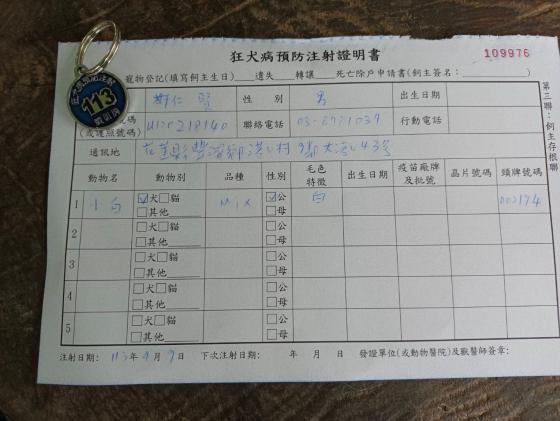 狂犬病預防注射證明書
109976
寵物登記(填寫飼主生日)____遺失____轉讓____死亡除戶申請書(飼主簽名:__________)
第三聯:飼主存根聯
性別 男 出生日期
(或護照號碼) 聯絡電話 行動電話
通訊地
動物名 動物別 品種 性別 毛色特徵 出生日期 疫苗廠牌及批號 晶片號碼 頸牌號碼
1 小白 ☑犬□貓 Mix ☑公 白
□其他____ □母
2 □犬□貓 □公
□其他____ □母
3 □犬□貓 □公
□其他____ □母
4 □犬□貓 □公
□其他____ □母
5 □犬□貓 □公
□其他____ □母
注射日期: 113年 月9日 下次注射日期: 年 月 日 發證單位(或動物醫院)及獸醫師簽章:
113